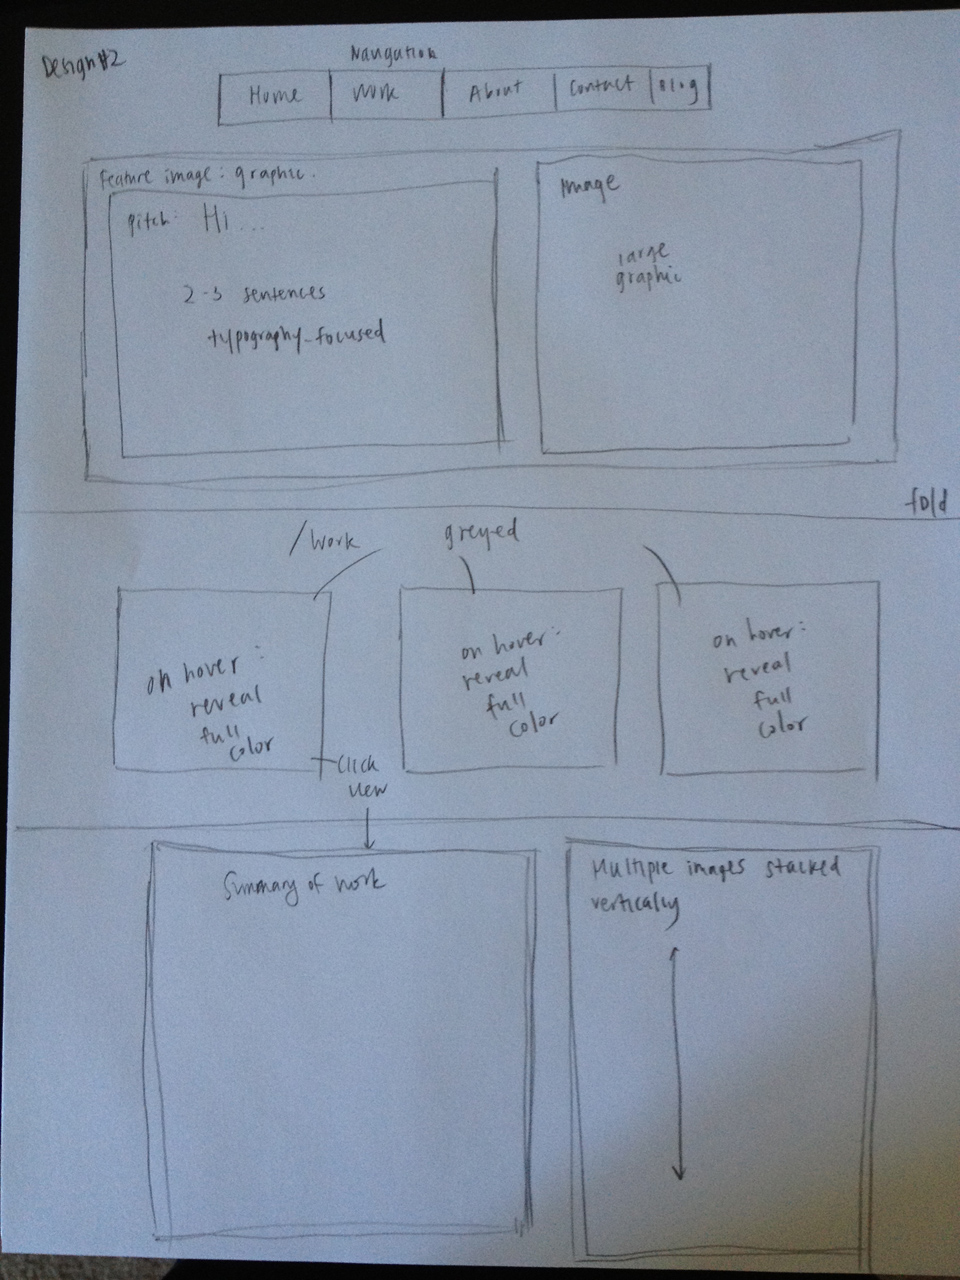 Design #2
Navigation
Home Work About Contact Blog
feature image: graphic.
pitch: Hi...
2-3 sentences
typography-focused
Image
large
graphic
fold
/work
greyed
on hover:
reveal
full
color
on hover:
reveal
full
color
on hover:
reveal
full
color
click
view
Summary of work
Multiple images stacked
vertically